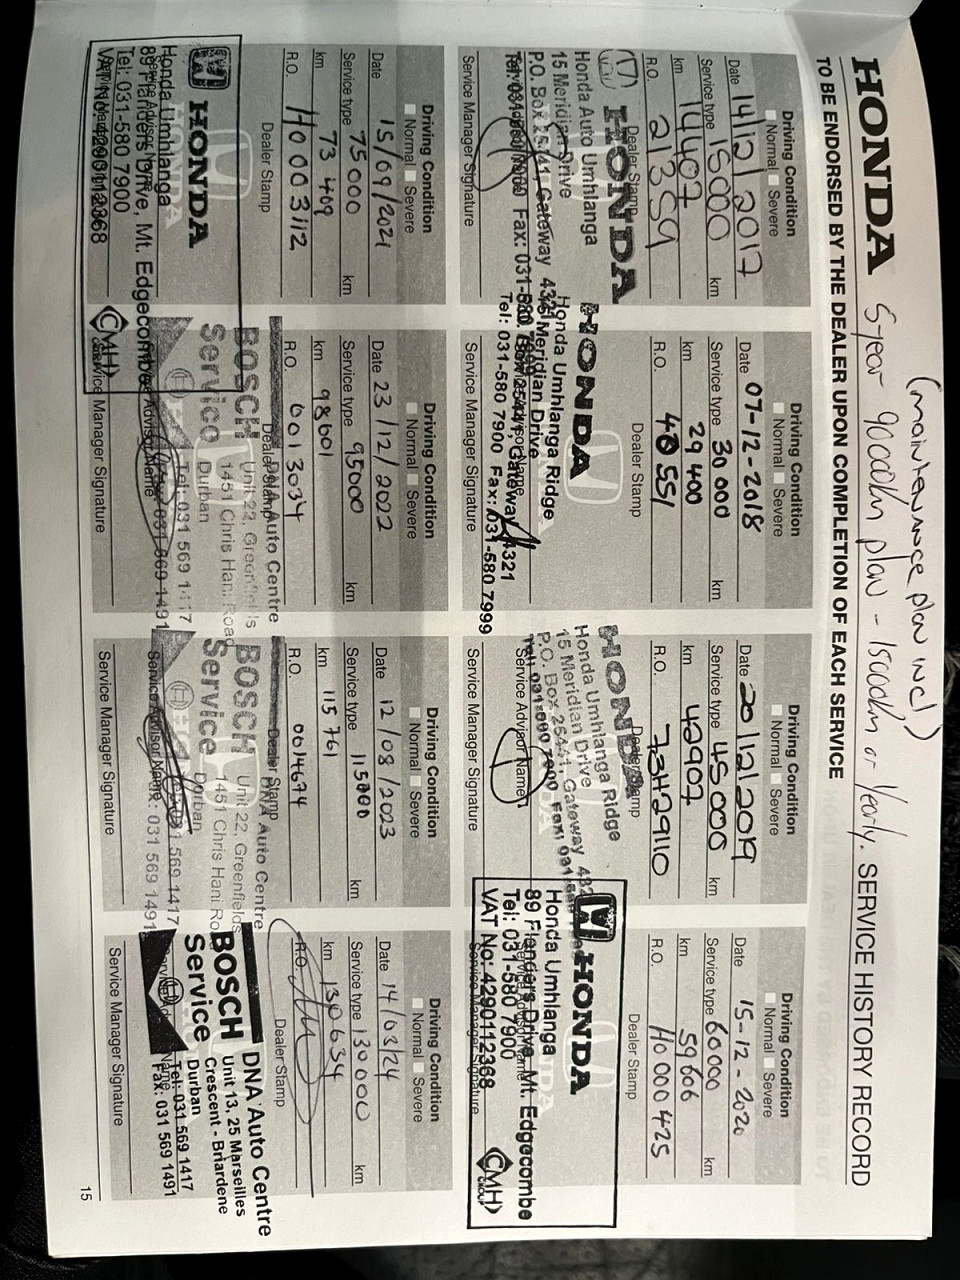 HONDA
(maintenance plan incl)
5-year 90000km plan - 15000km or Yearly.
SERVICE HISTORY RECORD
TO BE ENDORSED BY THE DEALER UPON COMPLETION OF EACH SERVICE
Driving Condition
Normal Severe
Date 14/12/2017
Service type 15000 km
km 14407
R.O. 21359
Dealer Stamp
HONDA
Honda Auto Umhlanga
15 Meridian Drive
P.O. Box 25441, Gateway 4321
Fax: 031-580 7999
Service Manager Signature
Driving Condition
Normal Severe
Date 07-12-2018
Service type 30 000 km
km 29 400
R.O.
Dealer Stamp
HONDA
Honda Umhlanga Ridge
15 Meridian Drive
Gateway, 4321
Tel: 031-580 7900 Fax: 031-580 7999
Service Manager Signature
Driving Condition
Normal Severe
Date 20/12/2019
Service type 45000 km
km 42907
R.O. 73H29110
Dealer Stamp
HONDA
Honda Umhlanga Ridge
15 Meridian Drive
P.O. Box 25441, Gateway 432
Service Advisor Name
Service Manager Signature
Driving Condition
Normal Severe
Date 15-12-2020
Service type 60000 km
km 59 606
R.O. H0 000 425
Dealer Stamp
HONDA
Honda Umhlanga
89 Flanders Drive, Mt. Edgecombe
Tel: 031-580 7900
VAT No: 4290112368
CMH GROUP
Service Manager Signature
Driving Condition
Normal Severe
Date 15/09/2021
Service type 75000 km
km 73 409
R.O. H0 003112
Dealer Stamp
HONDA
Honda Umhlanga
89 Flanders Drive, Mt. Edgecombe
Tel: 031-580 7900
VAT No: 4290112368
CMH
Driving Condition
Normal Severe
Date 23/12/2022
Service type 95000 km
km 98601
R.O. 0013034
Dealer Stamp
DNA Auto Centre
BOSCH
Service
Unit 22, Greenfields
1451 Chris Hani Road
Durban
Tel: 031 569 1417
031 569 1491
Service Advisor Name
Service Manager Signature
Driving Condition
Normal Severe
Date 12/08/2023
Service type 115000 km
km 115761
R.O. 0014674
Dealer Stamp
DNA Auto Centre
BOSCH
Service
Unit 22, Greenfields
1451 Chris Hani Ro
Durban
569 1417
031 569 1491
Service Advisor Name
Service Manager Signature
Driving Condition
Normal Severe
Date 14/03/24
Service type 130000 km
km 130634
R.O.
Dealer Stamp
DNA Auto Centre
BOSCH
Service
Unit 13, 25 Marseilles
Crescent - Briardene
Durban
Tel: 031 569 1417
Fax: 031 569 1491
Service Manager Signature
15